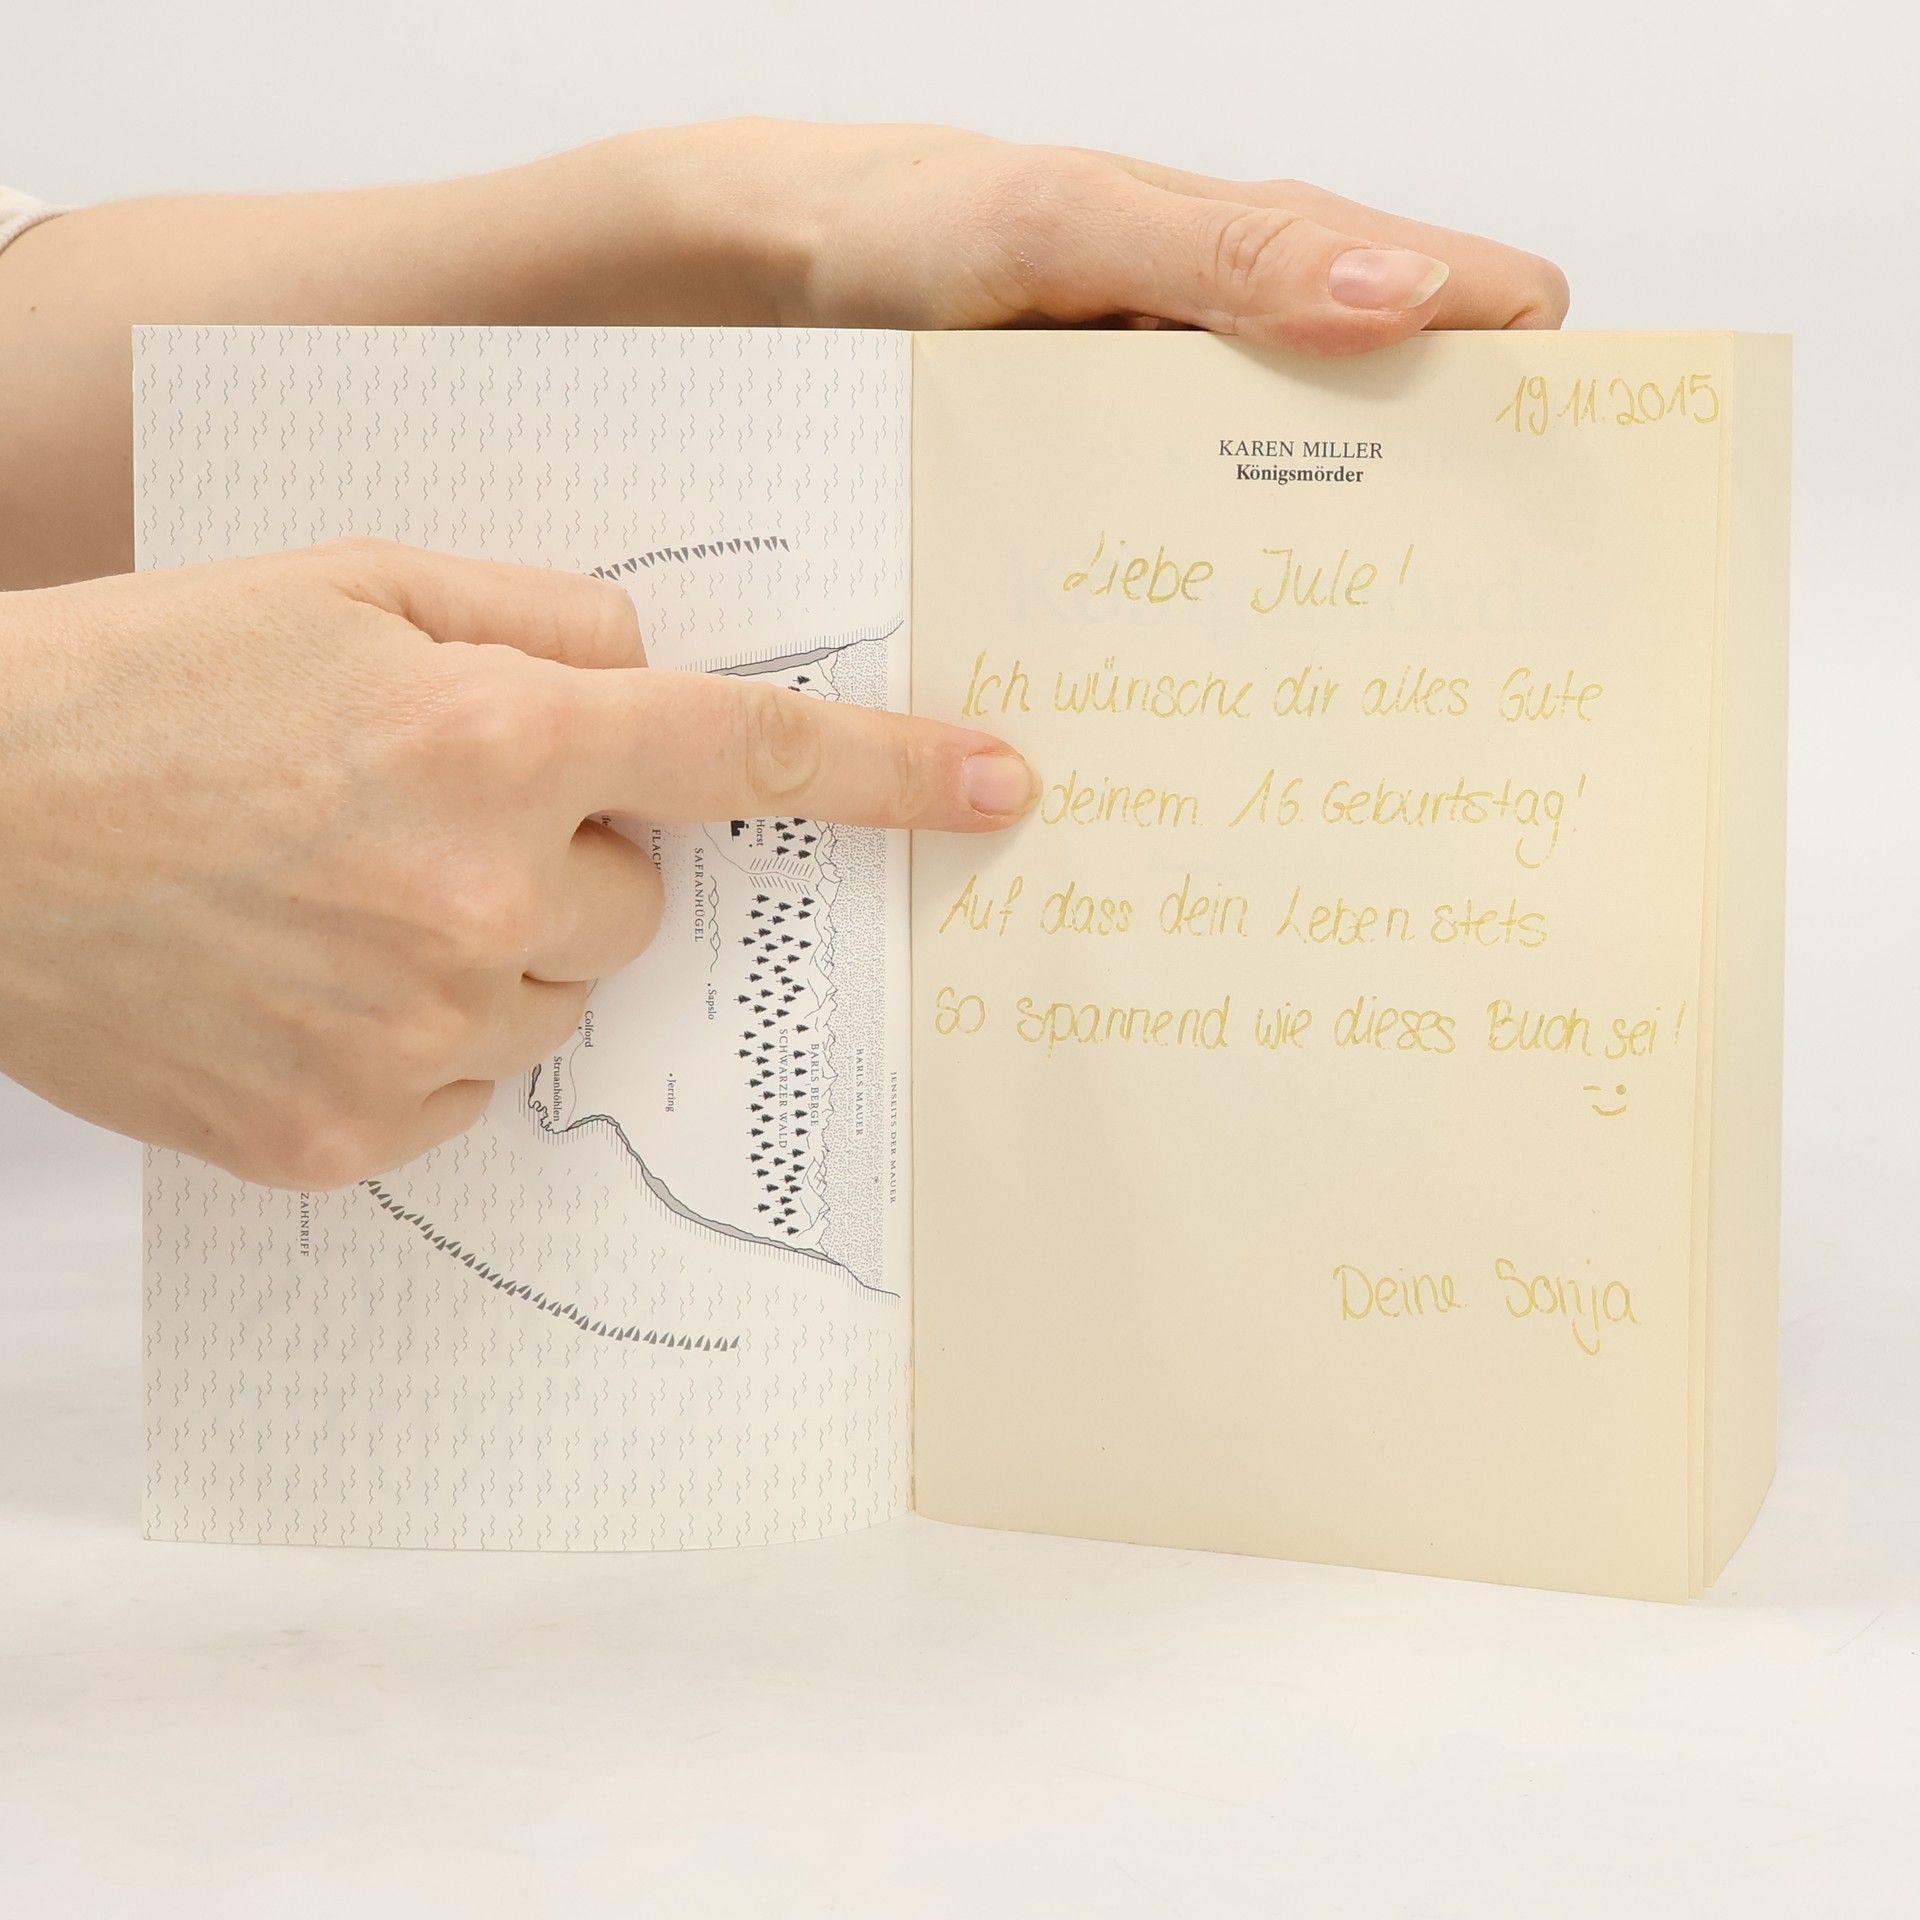 Horst
FLACH
SAFRANHÜGEL
Sapslo
Colford
Struanhöhlen
Jerring
SCHWARZER WALD
BARLS BERGE
BARLS MAUER
JENSEITS DER MAUER
ZAHNRIFF
19.11.2015
KAREN MILLER
Königsmörder
Liebe Jule!
Ich wünsche dir alles Gute
deinem 16. Geburtstag!
Auf dass dein Leben stets
so spannend wie dieses Buch sei!
Deine Sonja